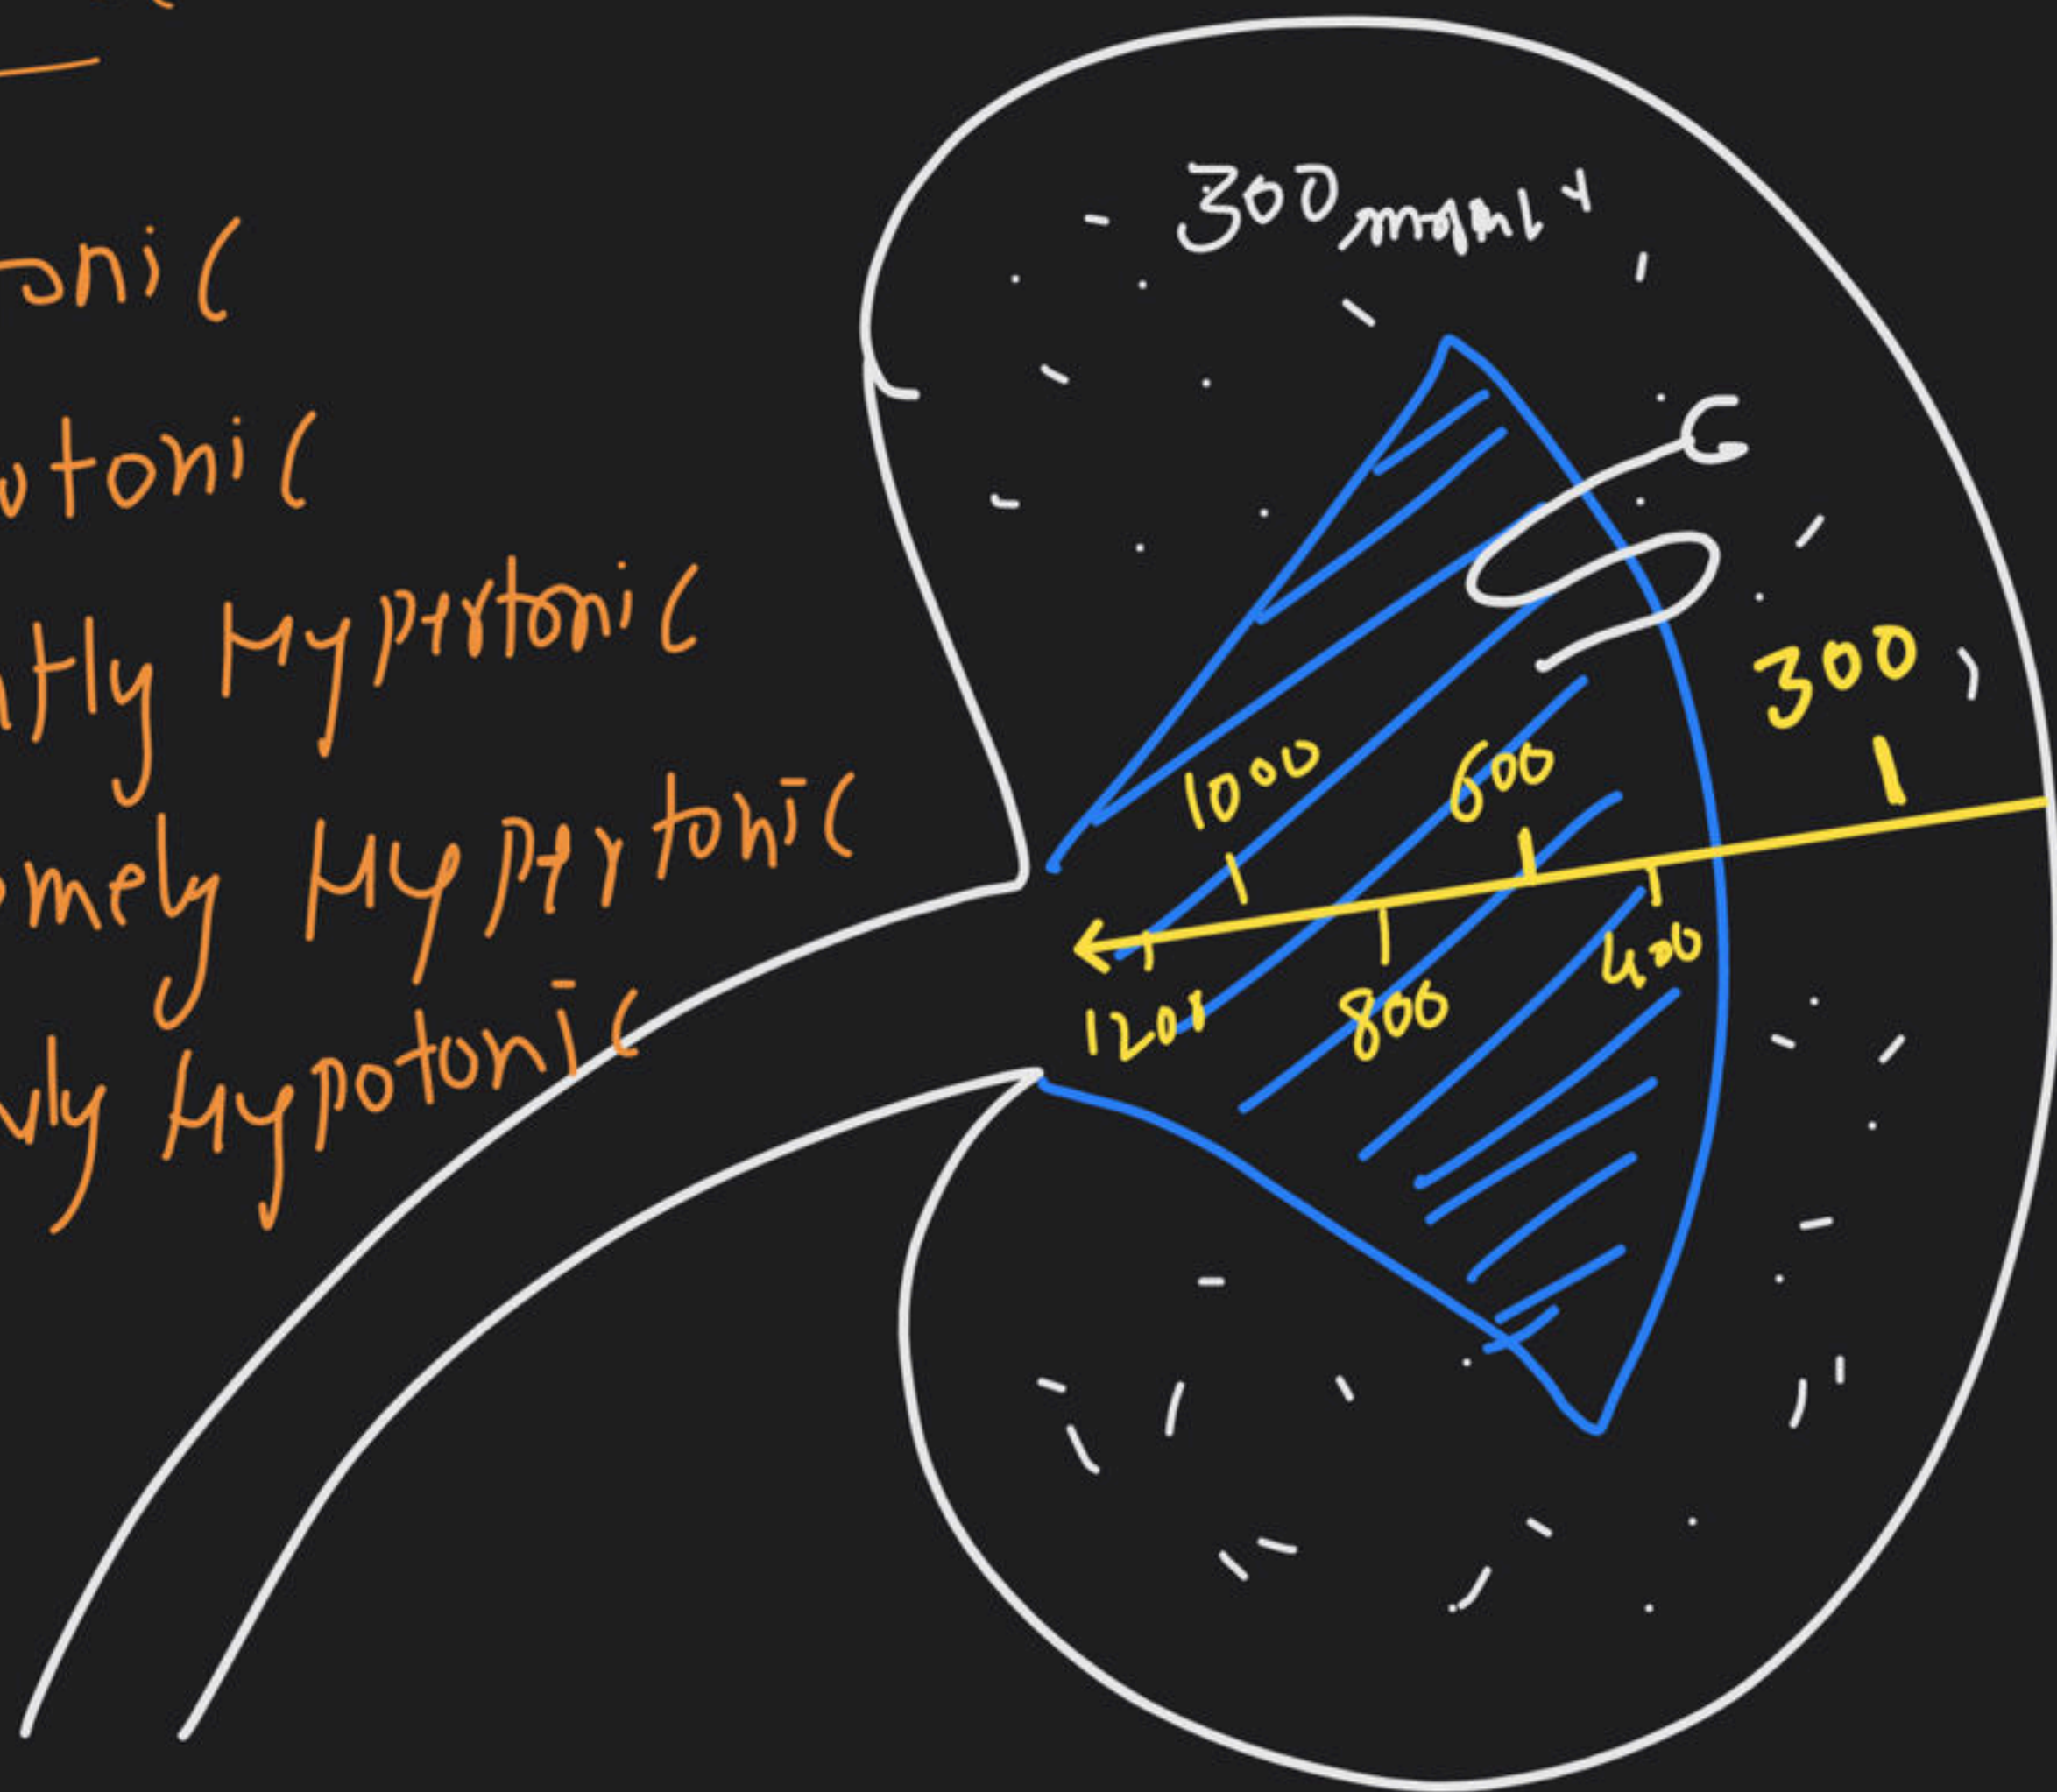 onic
tonic
tly Hypertonic
mely Hypertonic
ly Hypotonic
300
300
1000
600
400
800
1200